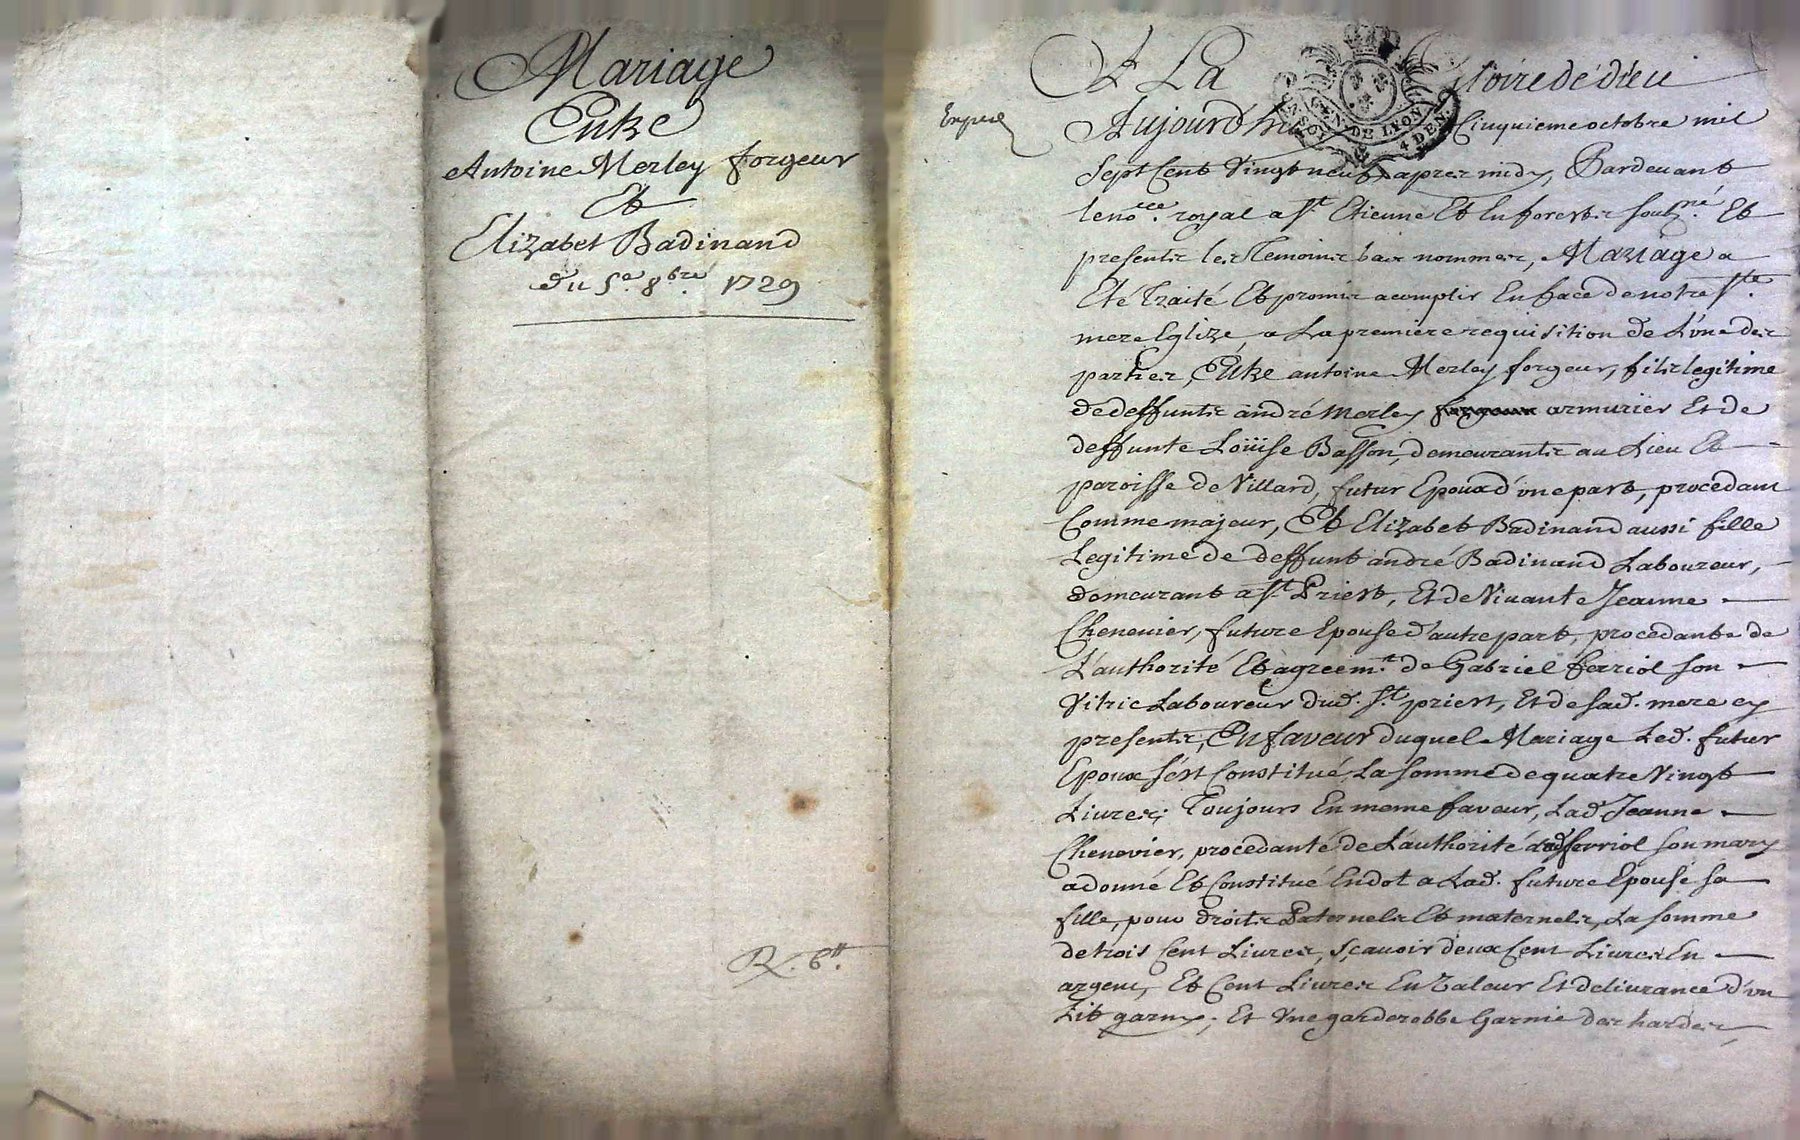 Mariage
Entre
Antoine Merley forgeur
Et
Elizabet Badinand
du 5e 8bre 1729
R. 6tt.
A La Gloire de dieu
GEN. DE LYON
4 DEN.
Aujourd'hui Cinquieme octobre mil
Sept Cent Vingt neuf apres midy, Pardevant
le nore. royal a St Etienne Et En forest soubné. Et
presents les Temoins bas nommes, Mariage a
Eté Traité Et promis acomplir En face de notre Ste.
mere Eglize, a La premiere requisition de L'une des
parties, Entre antoine Merley forgeur, fils legitime
de deffunts andré Merley forgeur armurier Et de
deffunte Loüise Basson, demeurants au Lieu Et
paroisse de Villard, futur Epoux d'une part, procedant
Comme majeur, Et Elizabet Badinand aussi fille
Legitime de deffunt andré Badinand Laboureur,
demeurant a St Priest, Et de Vivante Jeanne
Chenevier, future Epouse d'autre part, procedante de
L'authorité Et agreemt. de Gabriel ferriol son
Vitric Laboureur dud. St. priest, Et de sad. mere cy
presents, En faveur duquel Mariage Led. futur
Epoux s'est Constitué La somme de quatre Vingt
Livres; Toujours En meme faveur, Lad Jeanne
Chenevier, procedante de L'authorité dud ferriol son mary
a donné Et Constitué En dot a Lad. future Epouse sa
fille, pour droits Paternels Et maternels, La somme
de trois Cent Livres, sçavoir deux Cent Livres En
argent, Et Cent Livres En Valeur Et delivrance d'un
Lit garny; Et Une garderobbe Garnie des hardes,